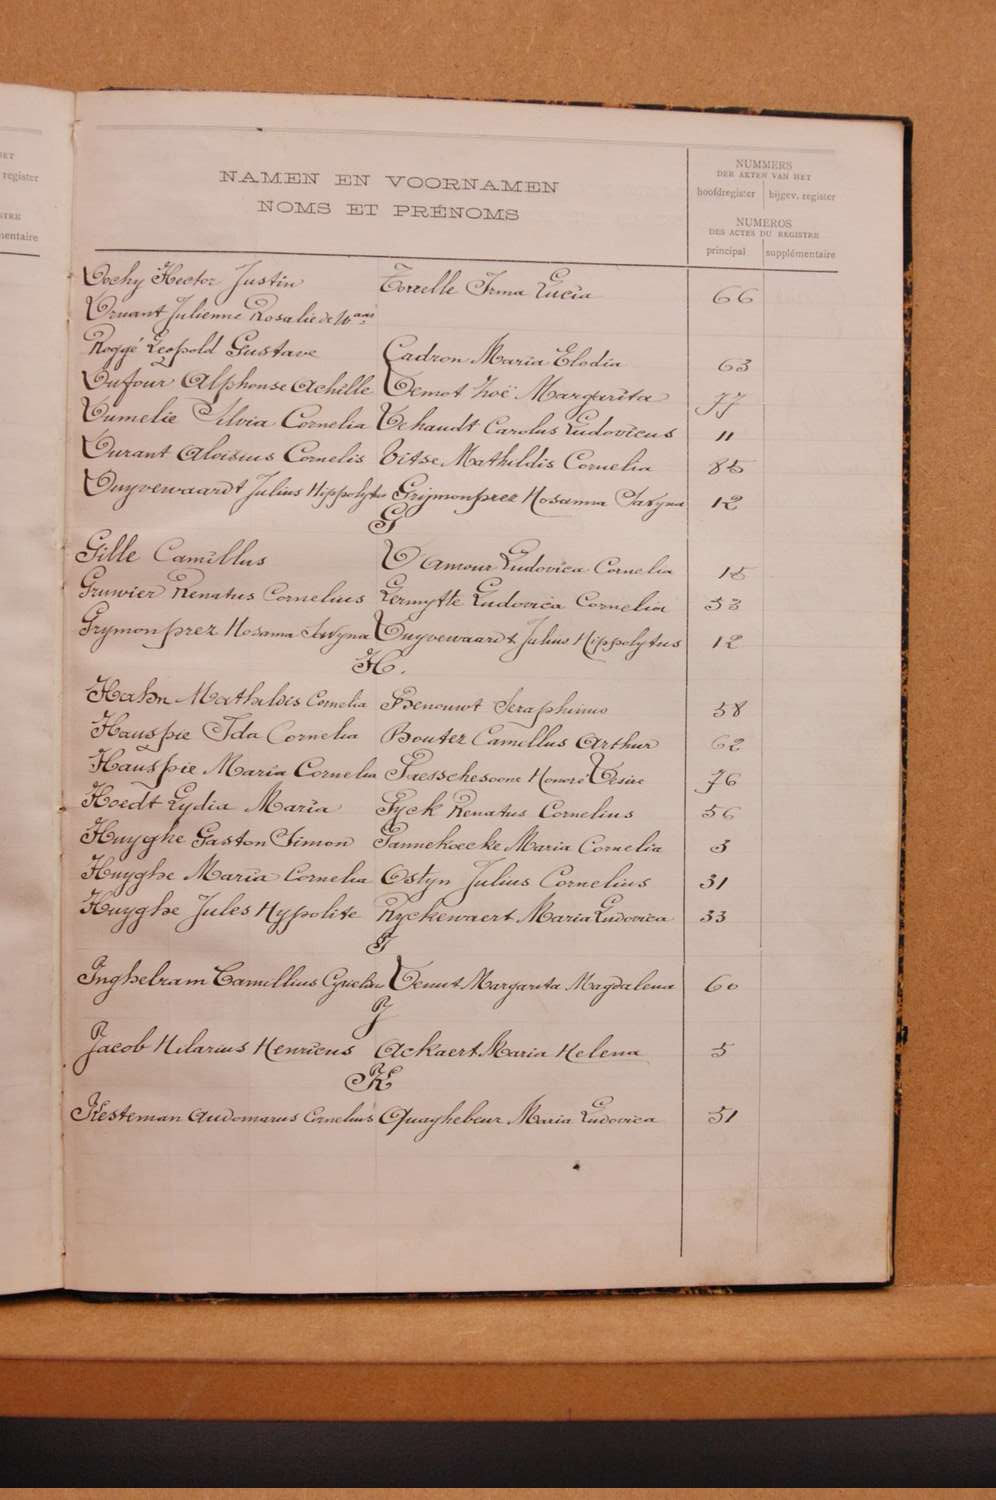 NAMEN EN VOORNAMEN
NOMS ET PRÉNOMS
NUMMERS
DER AKTEN VAN HET
hoofdregister bijgev. register
NUMEROS
DES ACTES DU REGISTRE
principal supplémentaire
register
mentaire
Dochy Hector Justin Torrelle Irma Lucia 66
Druant Julienne Rosalie de W
Roggé Leopold Gustave Cadron Maria Elodia 63
Dufour Alphonse Achille Demot Zoë Margarita 77
Dumelie Silvia Cornelia Dehaudt Carolus Ludovicus 11
Durant Aloisius Cornelis Vitse Mathildis Cornelia 85
Duyvewaardt Julius Hippolytus Grijmonprez Hosanna Savyna 12
G
Gille Camillus D'amour Ludovica Cornelia 15
Gruwier Renatus Cornelius Lermytte Ludovica Cornelia 53
Grymonprez Hosanna Savyna Duyvewaardt Julius Hippolytus 12
H.
Hahn Mathildis Cornelia Seraphinus 58
Hauspie Ida Cornelia Boutez Camillus Arthur 62
Hauspie Maria Cornelia Paesschesoone Honoré Desire 76
Hoedt Lydia Maria Syck Renatus Cornelius 56
Huyghe Gaston Simon Pannekoecke Maria Cornelia 3
Huyghe Maria Cornelia Ostyn Julius Cornelius 31
Huyghe Jules Hypolite Ryckewaert Maria Ludovica 33
I
Inghelram Camillius Demut Margarita Magdalena 60
J
Jacob Hilarius Henricus Ackaert Maria Helena 5
K
Kesteman Audomarus Cornelius Quaghebeur Maria Ludovica 51